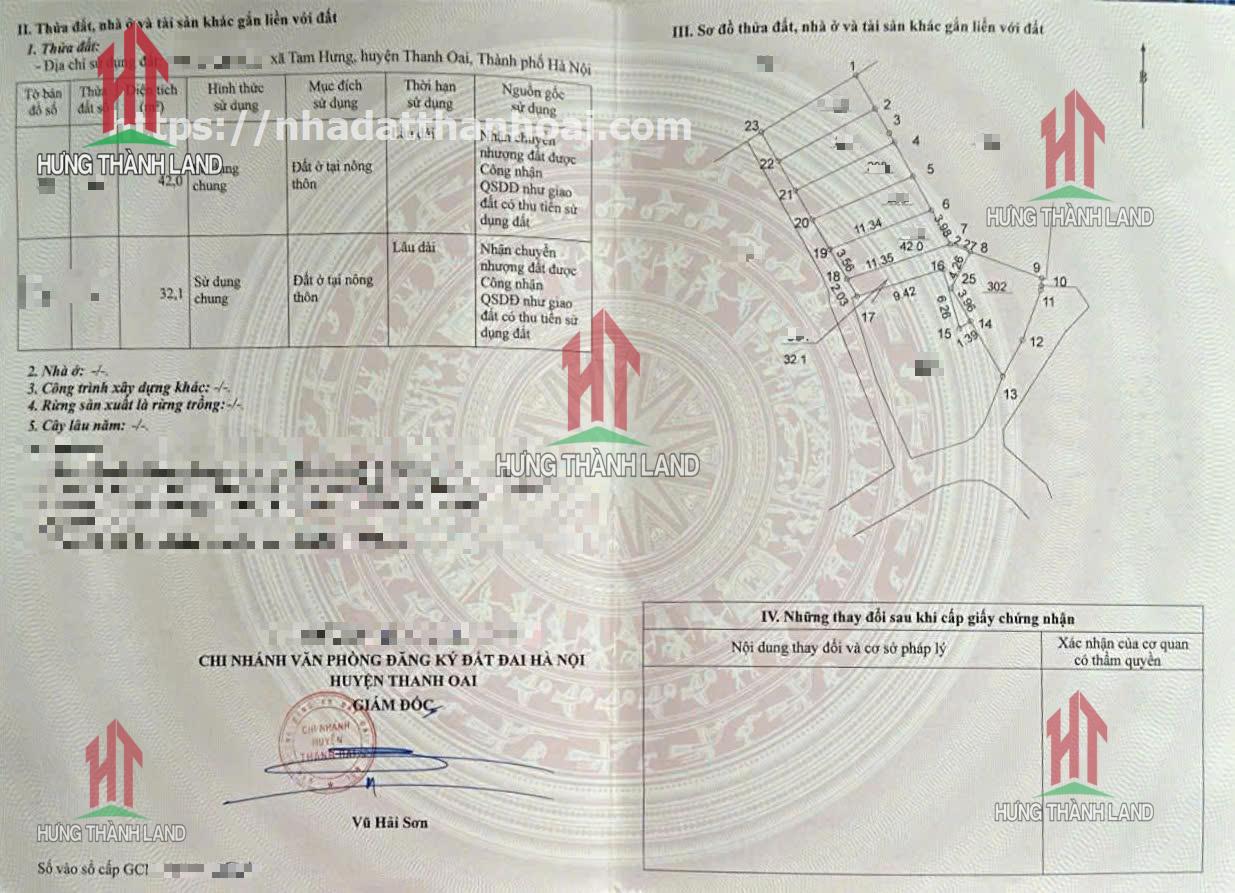 II. Thửa đất, nhà ở và tài sản khác gắn liền với đất
1. Thửa đất:
- Địa chỉ sử dụng đất: xã Tam Hưng, huyện Thanh Oai, Thành phố Hà Nội
Tờ bản đồ số
Thửa đất số
Diện tích (m²)
Hình thức sử dụng
Mục đích sử dụng
Thời hạn sử dụng
Nguồn gốc sử dụng
42,0
chung
Đất ở tại nông thôn
Lâu dài
Nhận chuyển nhượng đất được Công nhận QSDĐ như giao đất có thu tiền sử dụng đất
32,1
Sử dụng chung
Đất ở tại nông thôn
Lâu dài
Nhận chuyển nhượng đất được Công nhận QSDĐ như giao đất có thu tiền sử dụng đất
2. Nhà ở: -/-.
3. Công trình xây dựng khác: -/-.
4. Rừng sản xuất là rừng trồng: -/-.
5. Cây lâu năm: -/-.
CHI NHÁNH VĂN PHÒNG ĐĂNG KÝ ĐẤT ĐAI HÀ NỘI
HUYỆN THANH OAI
GIÁM ĐỐC
CHI NHÁNH
HUYỆN
THANH OAI
Vũ Hải Sơn
Số vào sổ cấp GC
III. Sơ đồ thửa đất, nhà ở và tài sản khác gắn liền với đất
B
1
2
3
4
5
6
7
8
9
10
11
12
13
14
15
16
17
18
19
20
21
22
23
25
11.34
3.98
2.27
42.0
11.35
3.56
2.03
4.26
9.42
6.26
3.96
1.39
302
32.1
IV. Những thay đổi sau khi cấp giấy chứng nhận
Nội dung thay đổi và cơ sở pháp lý
Xác nhận của cơ quan có thẩm quyền
https://nhadatthanhoai.com
HƯNG THÀNH LAND
HƯNG THÀNH LAND
HƯNG THÀNH LAND
HƯNG THÀNH LAND
HƯNG THÀNH LAND